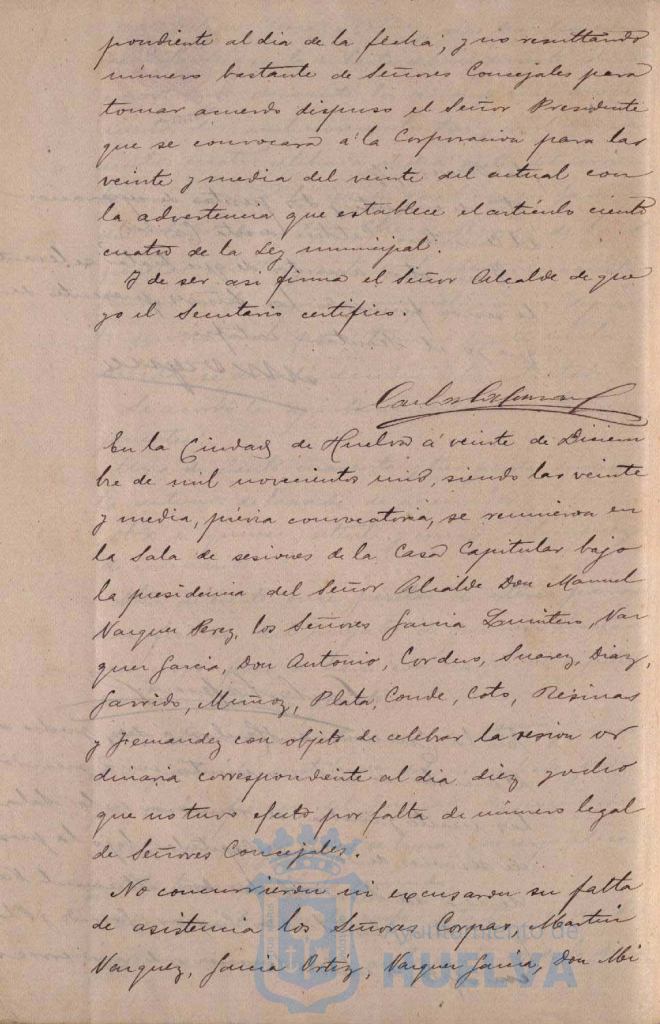 pondiente al dia de la fecha, y no resultando
número bastante de Señores Concejales para
tomar acuerdo dispuso el Señor Presidente
que se convocara á la Corporacion para las
veinte y media del veinte del actual con
la advertencia que establece el artículo ciento
cuatro de la Ley municipal.
Y de ser asi firma el Señor Alcalde de que
yo el Secretario certifico.
En la Ciudad de Huelva á veinte de Diciem
bre de mil novecientos uno, siendo las veinte
y media, prévia convocatoria, se reunieron en
la Sala de sesiones de la Casa Capitular bajo
la presidencia del Señor Alcalde Don Manuel
Vazquez Perez, los Señores Garcia Quintero, Vaz
quez Garcia, Don Antonio, Cordero, Suarez, Diaz,
Garrido, Muñoz, Plata, Conde, Coto, Resinas
y Fernandez con objeto de celebrar la sesion or
dinaria correspondiente al dia diez y ocho
que no tuvo efecto por falta de número legal
de Señores Concejales.
No concurrieron ni excusaron su falta
de asistencia los Señores Corpas, Martin
Vazquez, Garcia Ortiz, Vazquez Garcia, Don Mi
Ayuntamiento de
HUELVA